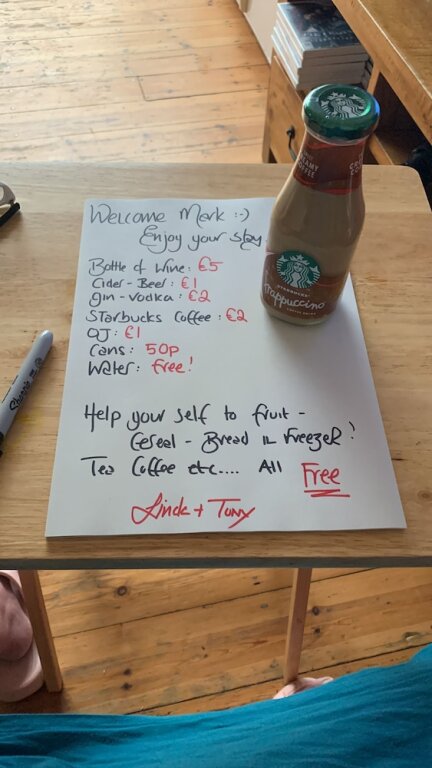 Welcome Mark :-)
Enjoy your stay
Bottle of Wine: £5
Cider - Beer: £1
Gin - Vodka: £2
Starbucks Coffee: £2
OJ: £1
Cans: 50p
Water: Free!
Help your self to fruit -
Cereal - Bread in Freezer!
Tea Coffee etc.... All Free
Linda + Tony
CREAMY
COFFEE
STARBUCKS
Frappuccino
COFFEE DRINK
Sharpie